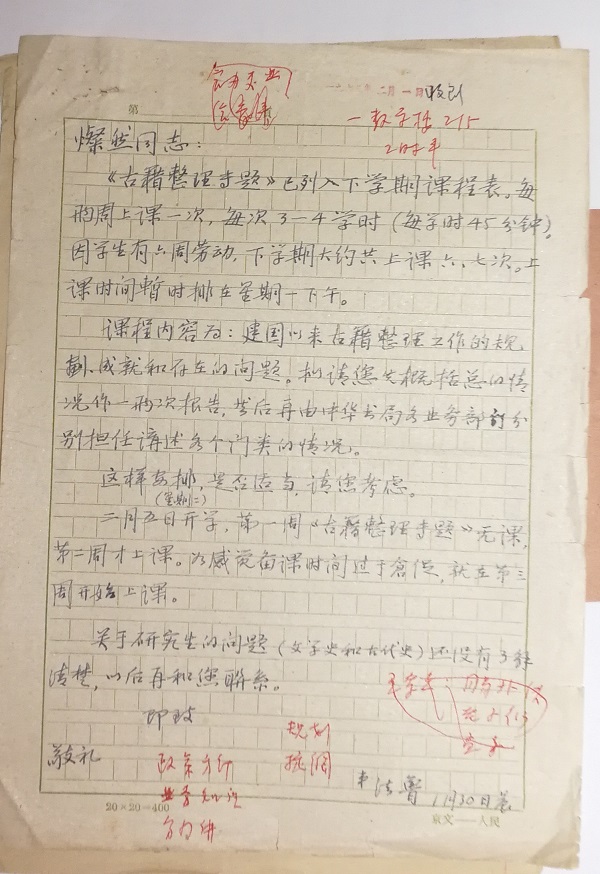 二月一日收到
一教学楼215
2时半
第
燦然同志：
《古籍整理专题》已列入下学期课程表。每
两周上课一次，每次3—4学时（每学时45分钟）。
因学生有六周劳动，下学期大约共上课六、七次。上
课时间暂时排在星期一下午。
课程内容为：建国以来古籍整理工作的规
划、成就和存在的问题。拟请您先概括总的情
况作一两次报告，然后再由中华书局各业务部门分
别担任讲述各个门类的情况。
这样安排，是否适当，请您考虑。
（星期二）
二月五日开学，第一周《古籍整理专题》无课，
第二周才上课。如感觉备课时间过于仓促，就在第三
周开始上课。
关于研究生的问题（文学史和古代史）还没有了解
清楚，以后再和您联系。
即致
敬礼
规划
政策方针
业务知识
法鲁 1月30日晨
20×20=400
京文——人民